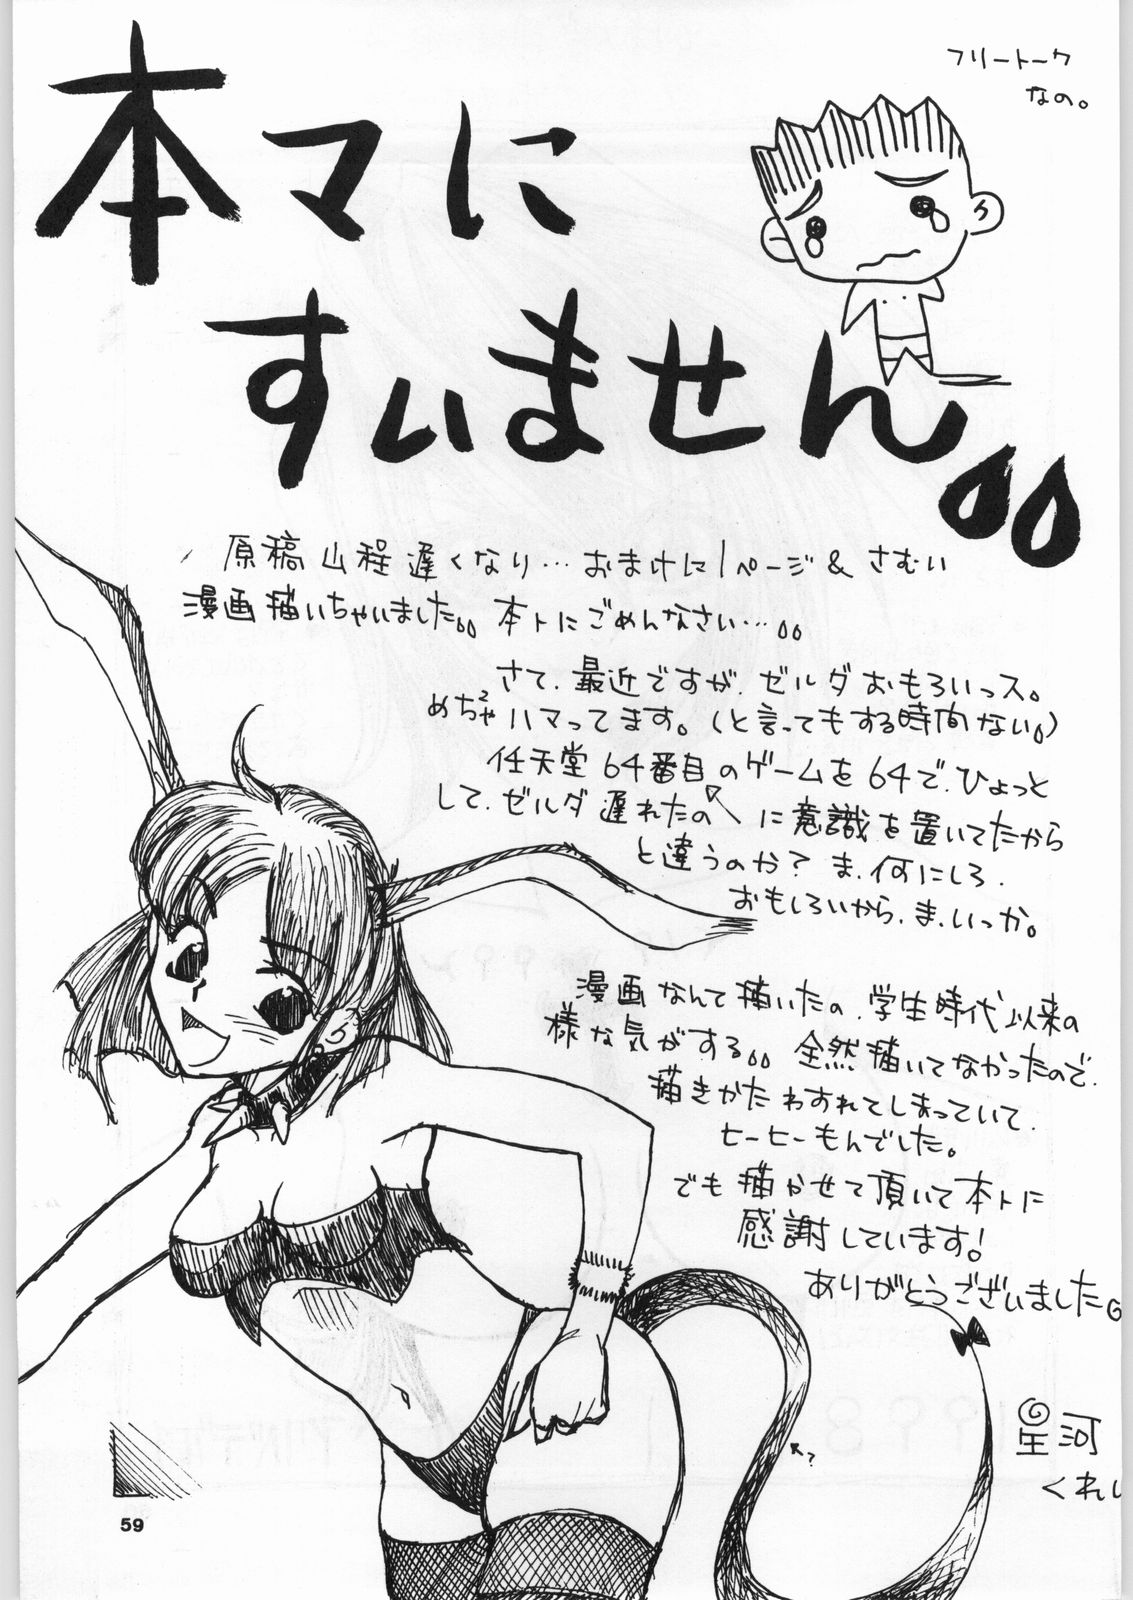 フリートーク
なの。
本マに
すいません
原稿山程遅くなり…おまけに1ページ&さむい
漫画描いちゃいました。。本トにごめんなさい…。。
さて、最近ですが、ゼルダおもろいっス。
めちゃ2ハマってます。(と言ってもする時間ない。。)
任天堂64番目のゲームを64で、ひょっと
して、ゼルダ遅れたの に意識を置いてたから
と違うのか?ま、何にしろ、
おもしろいから、ま、いっか。
漫画なんて描いたの、学生時代以来の
様な気がする。。全然描いてなかったので、
描きかたわすれてしまっていて、
ヒーヒーもんでした。
でも描かせて頂いて本トに
感謝しています!
ありがとうございました。
?
星河
くれい
59